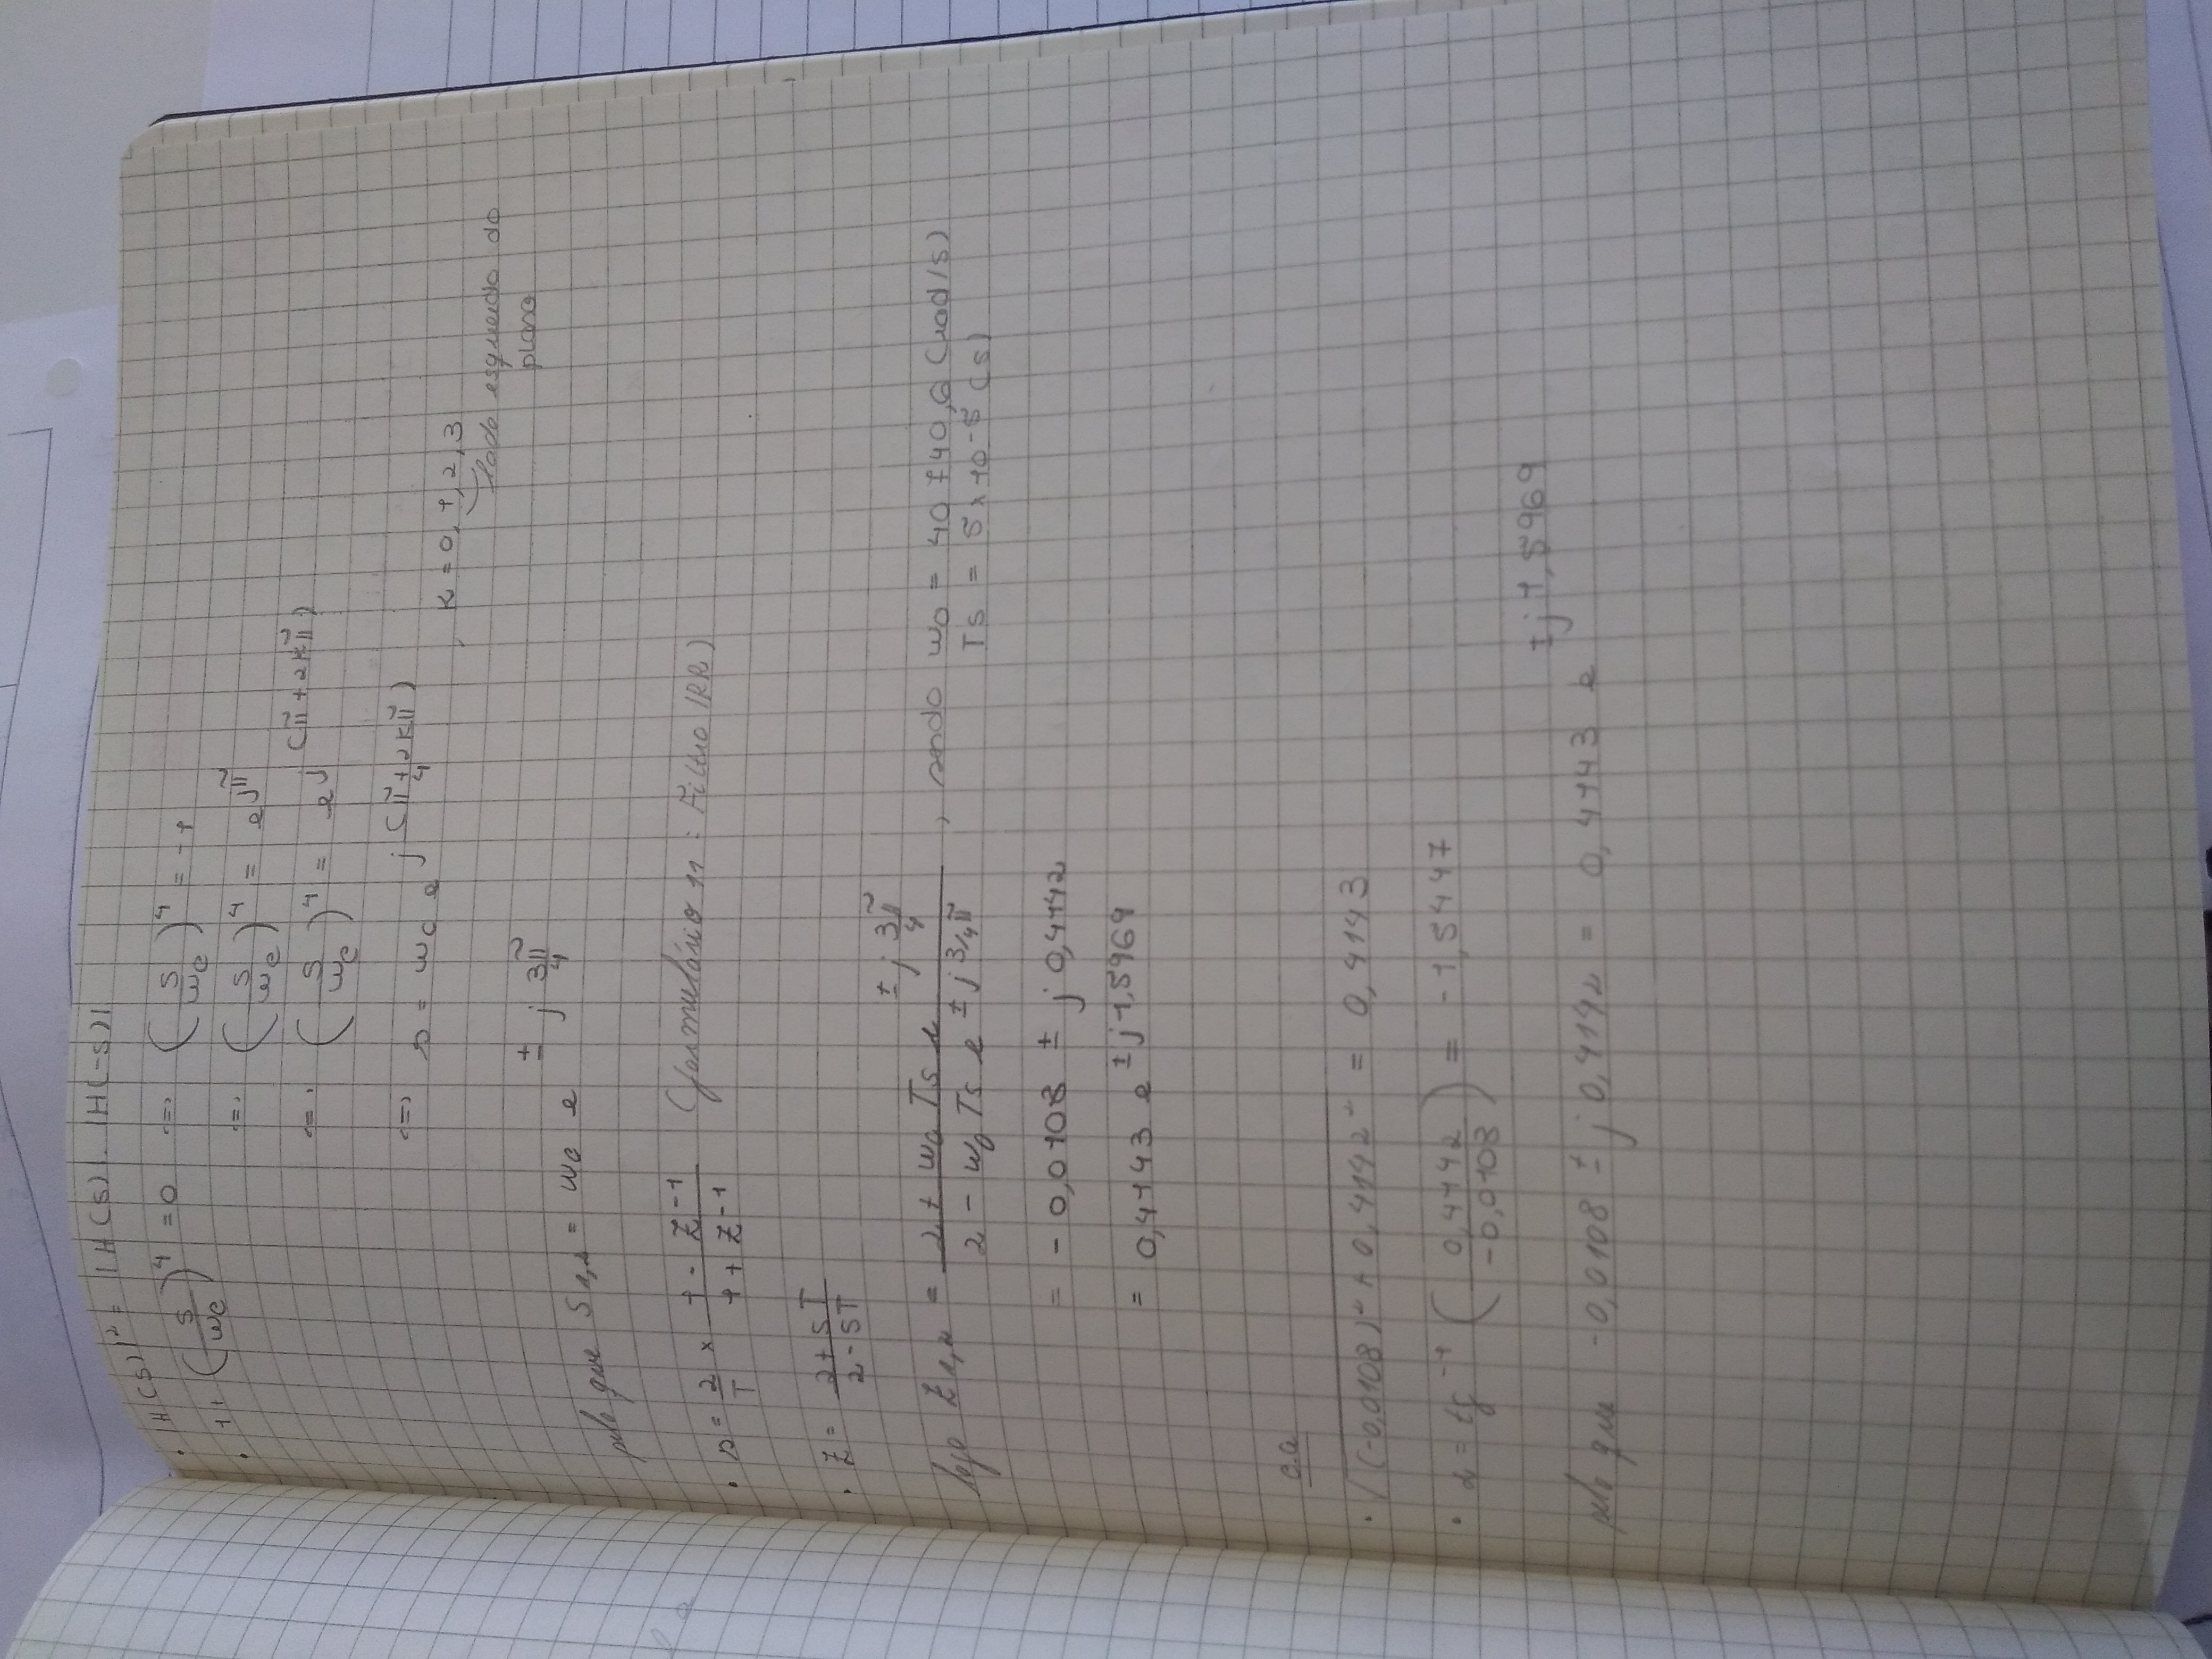 • |H(s)|² = |H(s)|. |H(-s)|
• 1+ (s/wc)⁴ = 0 <=> (s/wc)⁴ = -1
<=> (s/wc)⁴ = e^jπ
<=> (s/wc)⁴ = e^j(π+2kπ)
<=> s = wc e^j(π+2kπ)/4 , k = 0, 1, 2, 3
lado esquerdo do plano
pelo que S1,2 = wc e^± j 3π/4
• s = 2/T × (1 - z⁻¹)/(1 + z⁻¹) (formulário 11: Filtro IRR)
• z = (2+sT)/(2-sT)
logo Z1,2 = (2 + wo Ts e^± j 3π/4)/(2 - wo Ts e^± j 3/4π) , sendo wo = 40740,6 (rad/s)
Ts = 5×10-5 (s)
= - 0,0108 ± j 0,4142
= 0,4143 e^± j 1,5969
c.a
• √((-0,0108)² + 0,4142²) = 0,4143
• α = tg⁻¹ (0,4142/-0,0108) = -1,5447
pelo que -0,0108 ± j 0,4142 = 0,4143 e^± j 1,5969